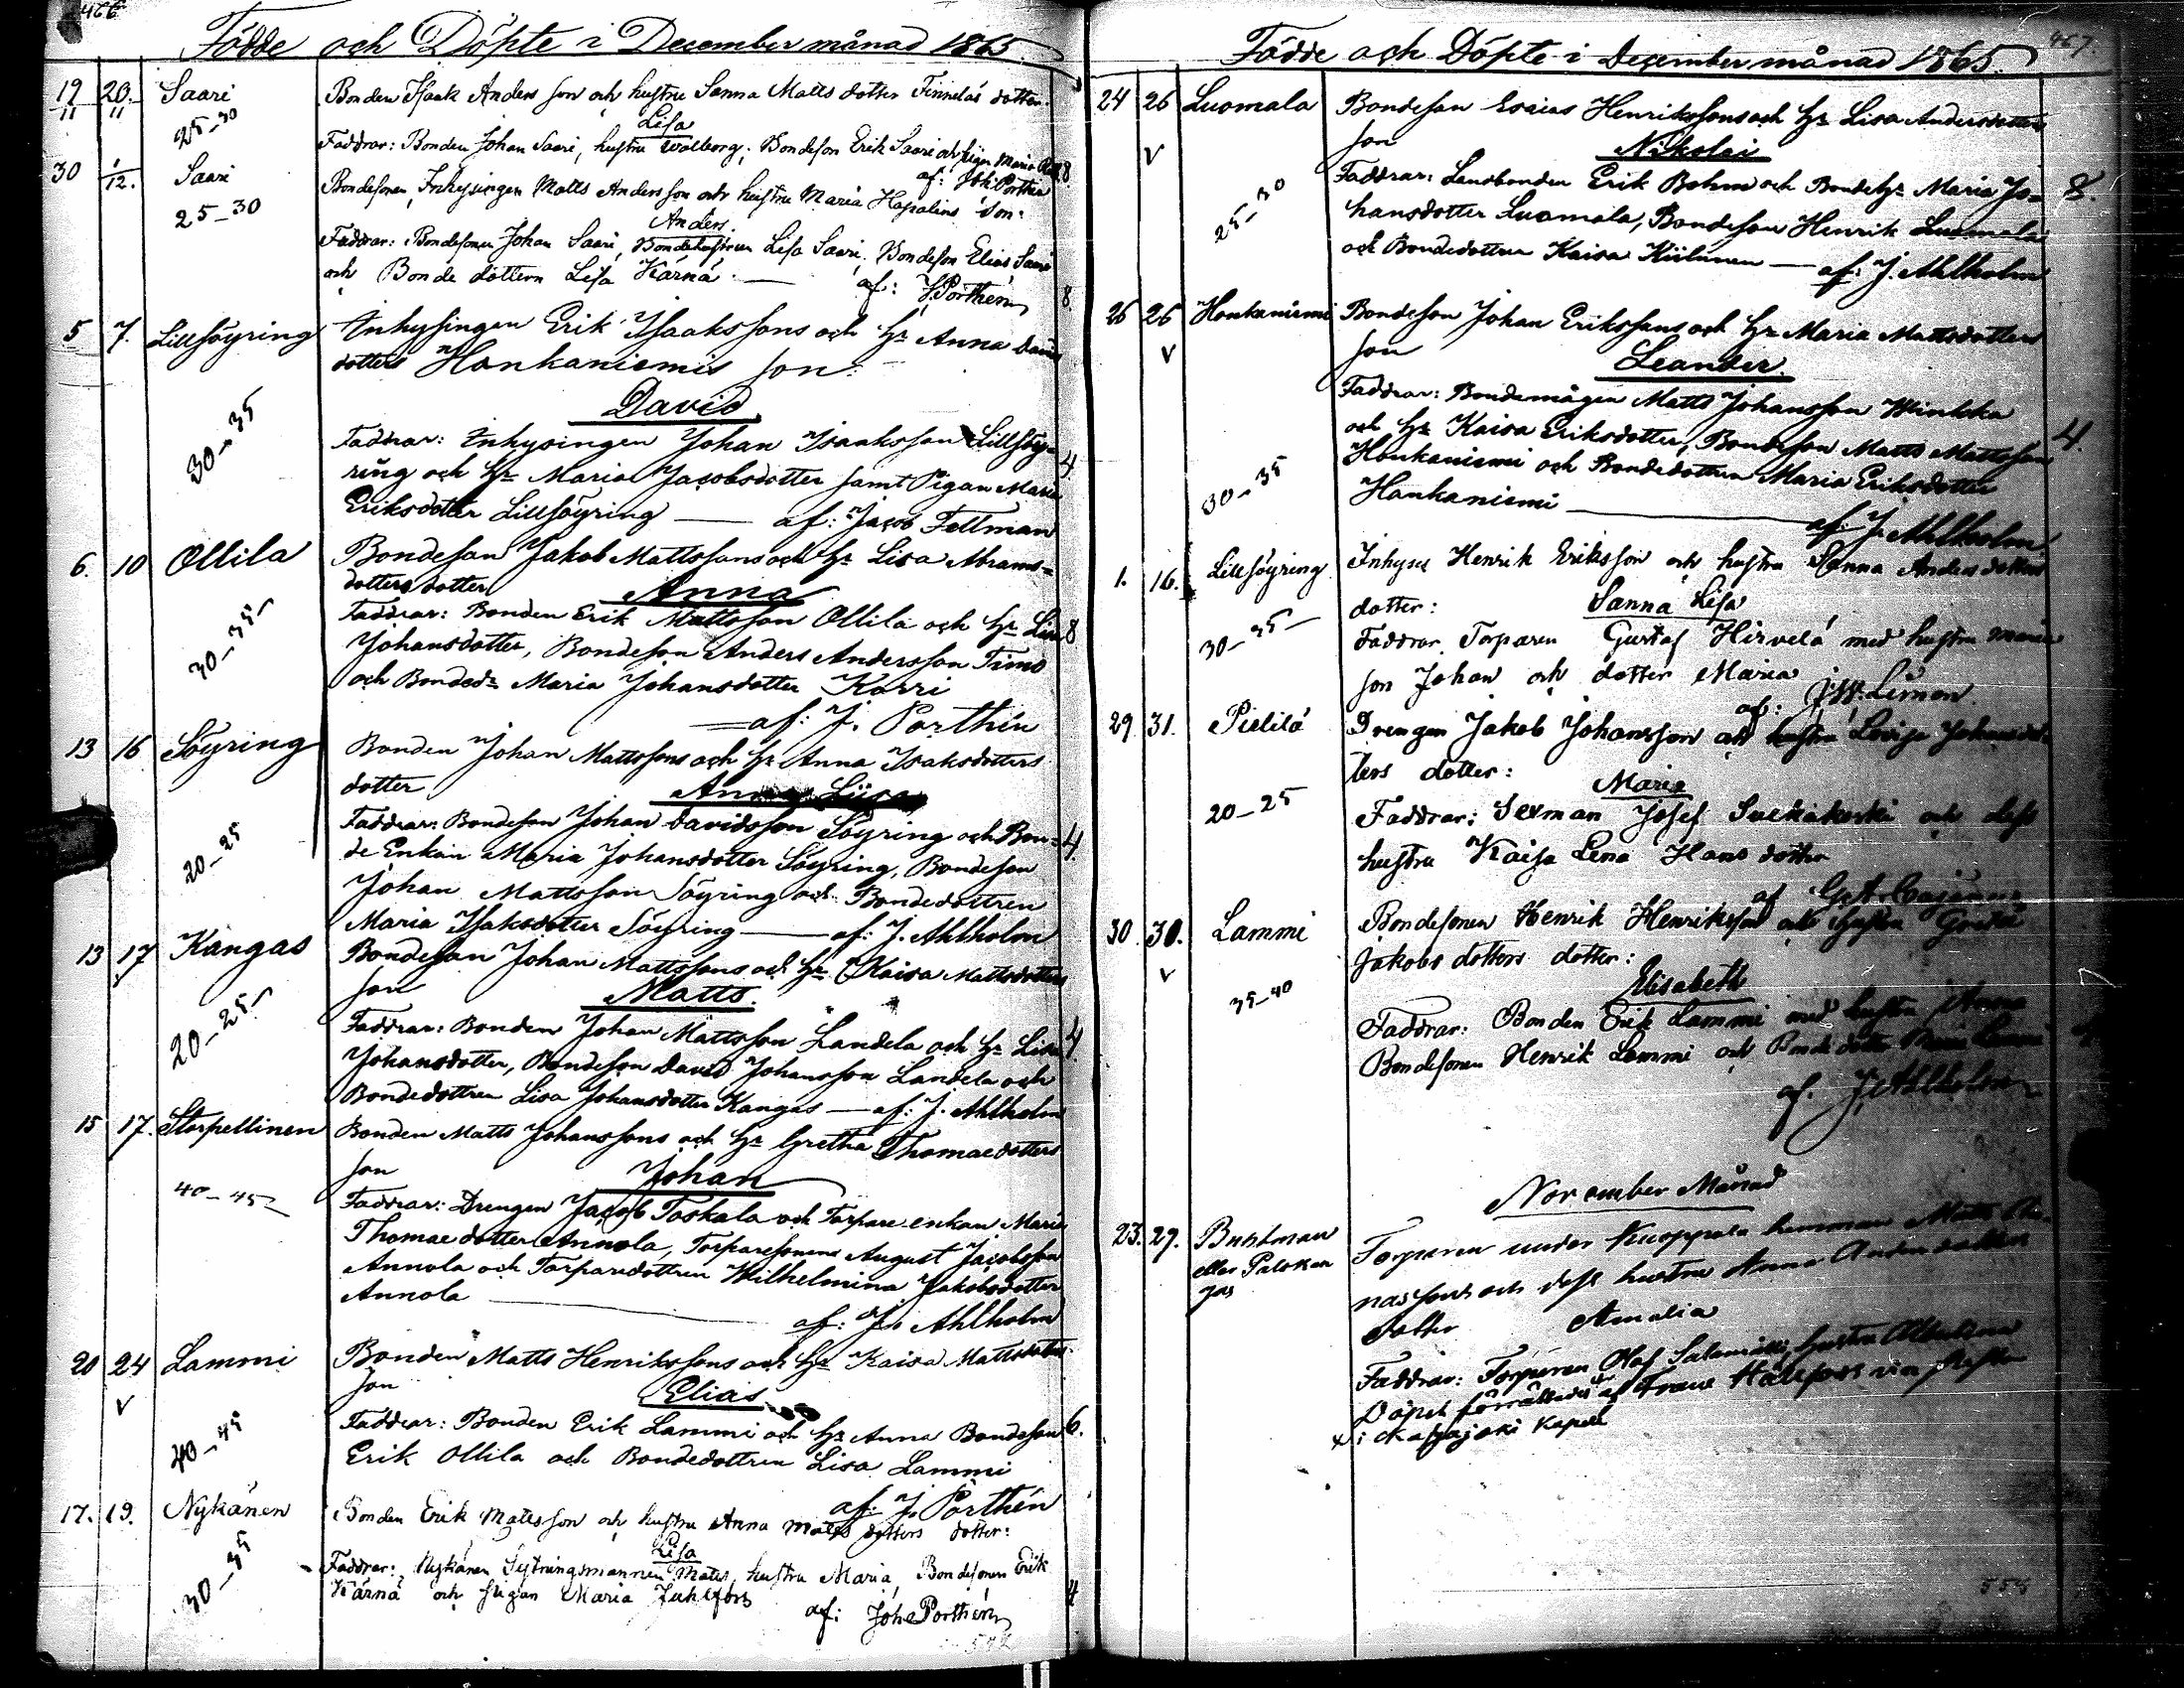 466
Födde och Döpte i December månad 1865
19/11 20/11 Saari Bonden Isaak Andersson och hustru Sanna Matts dotter Finneläs dotter
Lisa
25-30
Faddrar: Bonden Johan Saari, hustru Walborg; Bondeson Erik Saari och Pigan Maria
8
af: Joh Porthén
30 1/12. Saari Bondesonen, Inhysingen Matts Andersson och hustru Maria Hapalins Son:
25-30
Anders.
Faddrar: Bondesonen Johan Saari, Bondehustrun Lisa Saari. Bondeson Elias Saari
och Bonde dottern Lisa Kärnä. — af: J. Porthén 8
5 7. Lillsöyring Inhysingen Erik Isaakssons och Hr Anna Davids
dotters Honkaniemis son
David
30-35
Faddrar: Inhysingen Johan Isaaksson Lillsöy=
4
ring och Hr Maria Jacobsdotter samt Pigan Maria
Eriksdotter Lillsöyring — af: Jacob Fellman
6. 10 Ollila Bondeson Jakob Mattssons och Hr Lisa Abrams=
dotters dotter
Anna
30-35
Faddrar: Bonden Erik Mattsson Ollila och Hr Lisa 8
Johansdotter, Bondeson Anders Andersson Timo
och Bonded: Maria Johansdotter Karri
af: J. Porthén
13 16 Söyring Bonden Johan Mattssons och Hr Anna Isaksdotters
dotter
Anna Liisa
20-25
Faddrar: Bondeson Johan Davidsson Söyring och Bon= 4
de Enkan Maria Johansdotter Söyring, Bondeson
Johan Mattsson Söyring och Bondedottren
Maria Isaksdotter Söyring — af: J. Ahlholm
13 17 Kangas Bondeson Johan Mattssons och Hr Kaisa Mattsdotters
son
Matts.
20-25
Faddrar: Bonden Johan Mattsson Landela och Hr Lisa 4
Johansdotter, Bondeson David Johansson Landela och
Bondedottren Lisa Johansdotter Kangas — af: J. Ahlholm
15 17. Storpellinen Bonden Matts Johanssons och Hr Gretha Thomaedotters
son
Johan
40-45
Faddrar: Drengen Jacob Toskala och Torpare enkan Maria
Thomaedotter Annola, Torparesonene August Jacobsson
Annola och Torparedottren Wilhelmina Jakobsdotter
Annola
af: J. Ahlholm
20 24 Lammi Bonden Matts Henrikssons och Hr Kaisa Mattsdotters
son
v
Elias
40-45
Faddrar: Bonden Erik Lammi och Hr Anna Bondeson 6.
Erik Ollila och Bondedottren Lisa Lammi
af: J. Porthén
17. 19. Nykänen Bonden Erik Matsson och hustru Anna Mats dotters dotter:
Lisa
30-35
Faddrar: Nykänen Sytningsmannen Mats, hustru Maria, Bondesonen Erik
Kärnä och pigan Maria Juhlfors 4
af: Joh Porthén
467.
Födde och Döpte i December månad 1865.
24 26 Luomala Bondeson Esaias Henrikssons och Hr Lisa Andersdotters
son
v
Nikolai
25-30
Faddrar: Landbonden Erik Bohm och Bondehr Maria Jo= 8.
hansdotter Luomala, Bondeson Henrik Luomala
och Bondedottren Kaisa Kiilunen — af: J. Ahlholm
26 26 Honkaniemi Bondeson Johan Erikssons och Hr Maria Mattsdotters
son
v
Leander.
30-35
Faddrar: Bondemågen Matts Johansson Wintkka
och Hr Kaisa Eriksdotter, Bondeson Matts Mattsson 4.
Honkaniemi och Bondedottren Maria Eriksdotter
Honkaniemi
af: J. Ahlholm
1. 16. Lillsöyring Inhyses Henrik Eriksson och hustru Sanna Anders dotters
dotter:
Sanna Lisa
30-35
Faddrar Torparen Gustaf Hirvelä med hustru Maria
son Johan och dotter Maria
af: J. W. Liman
29. 31. Pielilä Drengen Jakob Johansson och hustru Lovisa Johansdot
ters dotter:
Maria
20-25
Faddrar: Sexman Josef Sückäkoski och dess
hustru Kaisa Lena Hans dotter
af G. A. Cajanus
30. 30. Lammi Bondesonen Henrik Henriksson och hustru Greta
Jakobs dotters dotter:
v
Elisabeth
35-40
Faddrar: Bonden Erik Lammi med hustru Anna
Bondesonen Henrik Lammi och Bonde dotter Maria Lammi
af. J. Ahlholm
November Månad
23. 29. Bustman
eller Palokan
gas
Torparen under Kuoppala hemman Matts
nassons och dess hustru Anna Anders dotters
dotter Amalia
Faddrar: Torparen Olof Salamäki, hustru Albertina
Döpet förrättades af Franz Hällfors
i Kapell